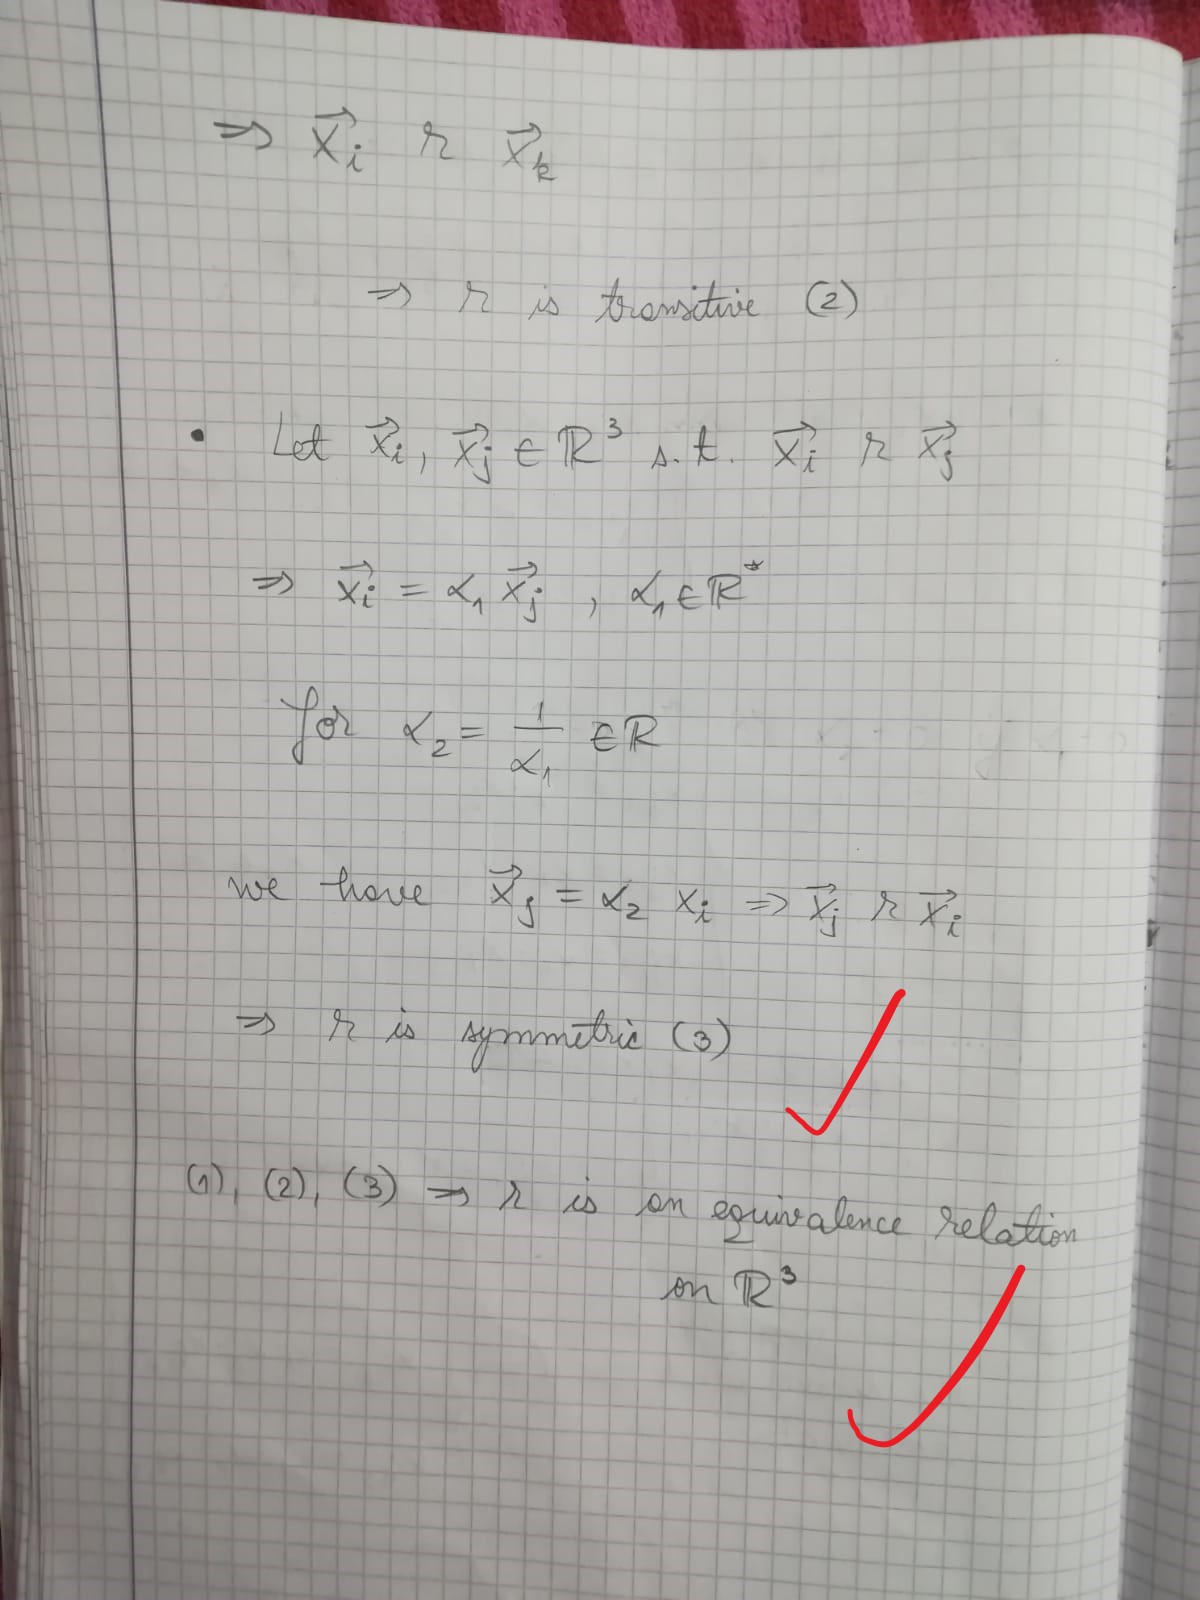 ⇒ x⃗ᵢ r x⃗ₖ
⇒ r is transitive (2)
• Let x⃗ᵢ, x⃗ⱼ ∈ ℝ³ s.t. x⃗ᵢ r x⃗ⱼ
⇒ x⃗ᵢ = α₁ x⃗ⱼ , α₁ ∈ ℝ*
for α₂ = 1/α₁ ∈ ℝ
we have x⃗ⱼ = α₂ xᵢ ⇒ x⃗ⱼ r x⃗ᵢ
⇒ r is symmetric (3)
(1), (2), (3) ⇒ r is an equivalence relation
on ℝ³